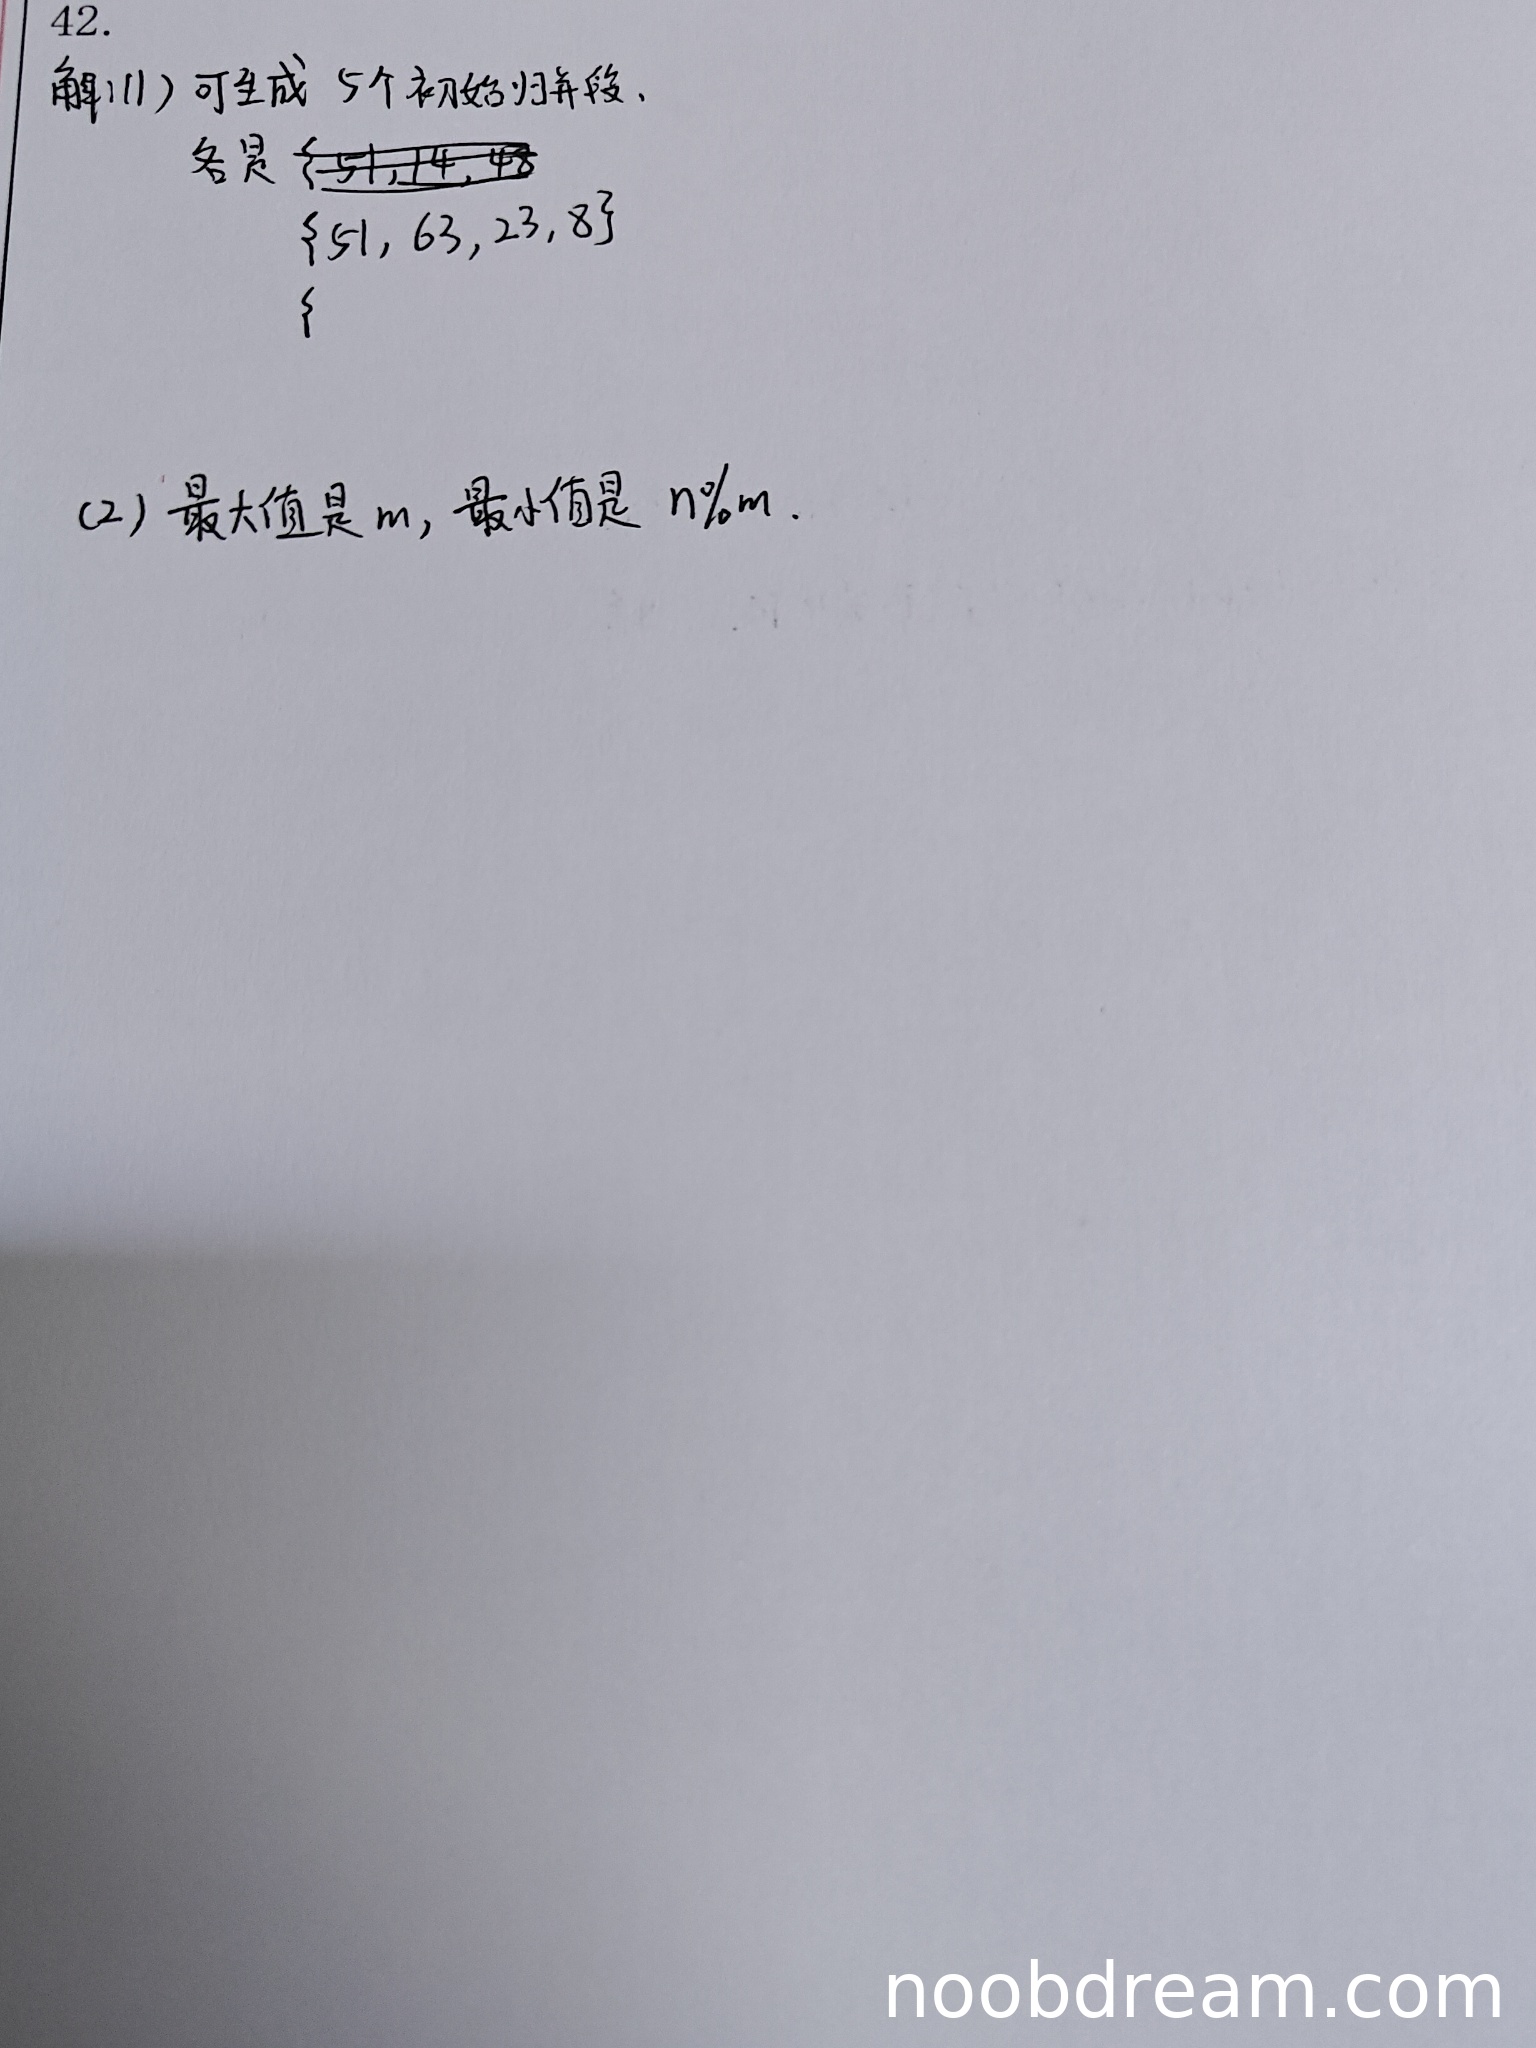 42.
解:(1) 可生成 5个初始归并段.
各是 {51, 14, 48
{51, 63, 23, 8}
{
(2) 最大值是m, 最小值是 n%m.
noobdream.com